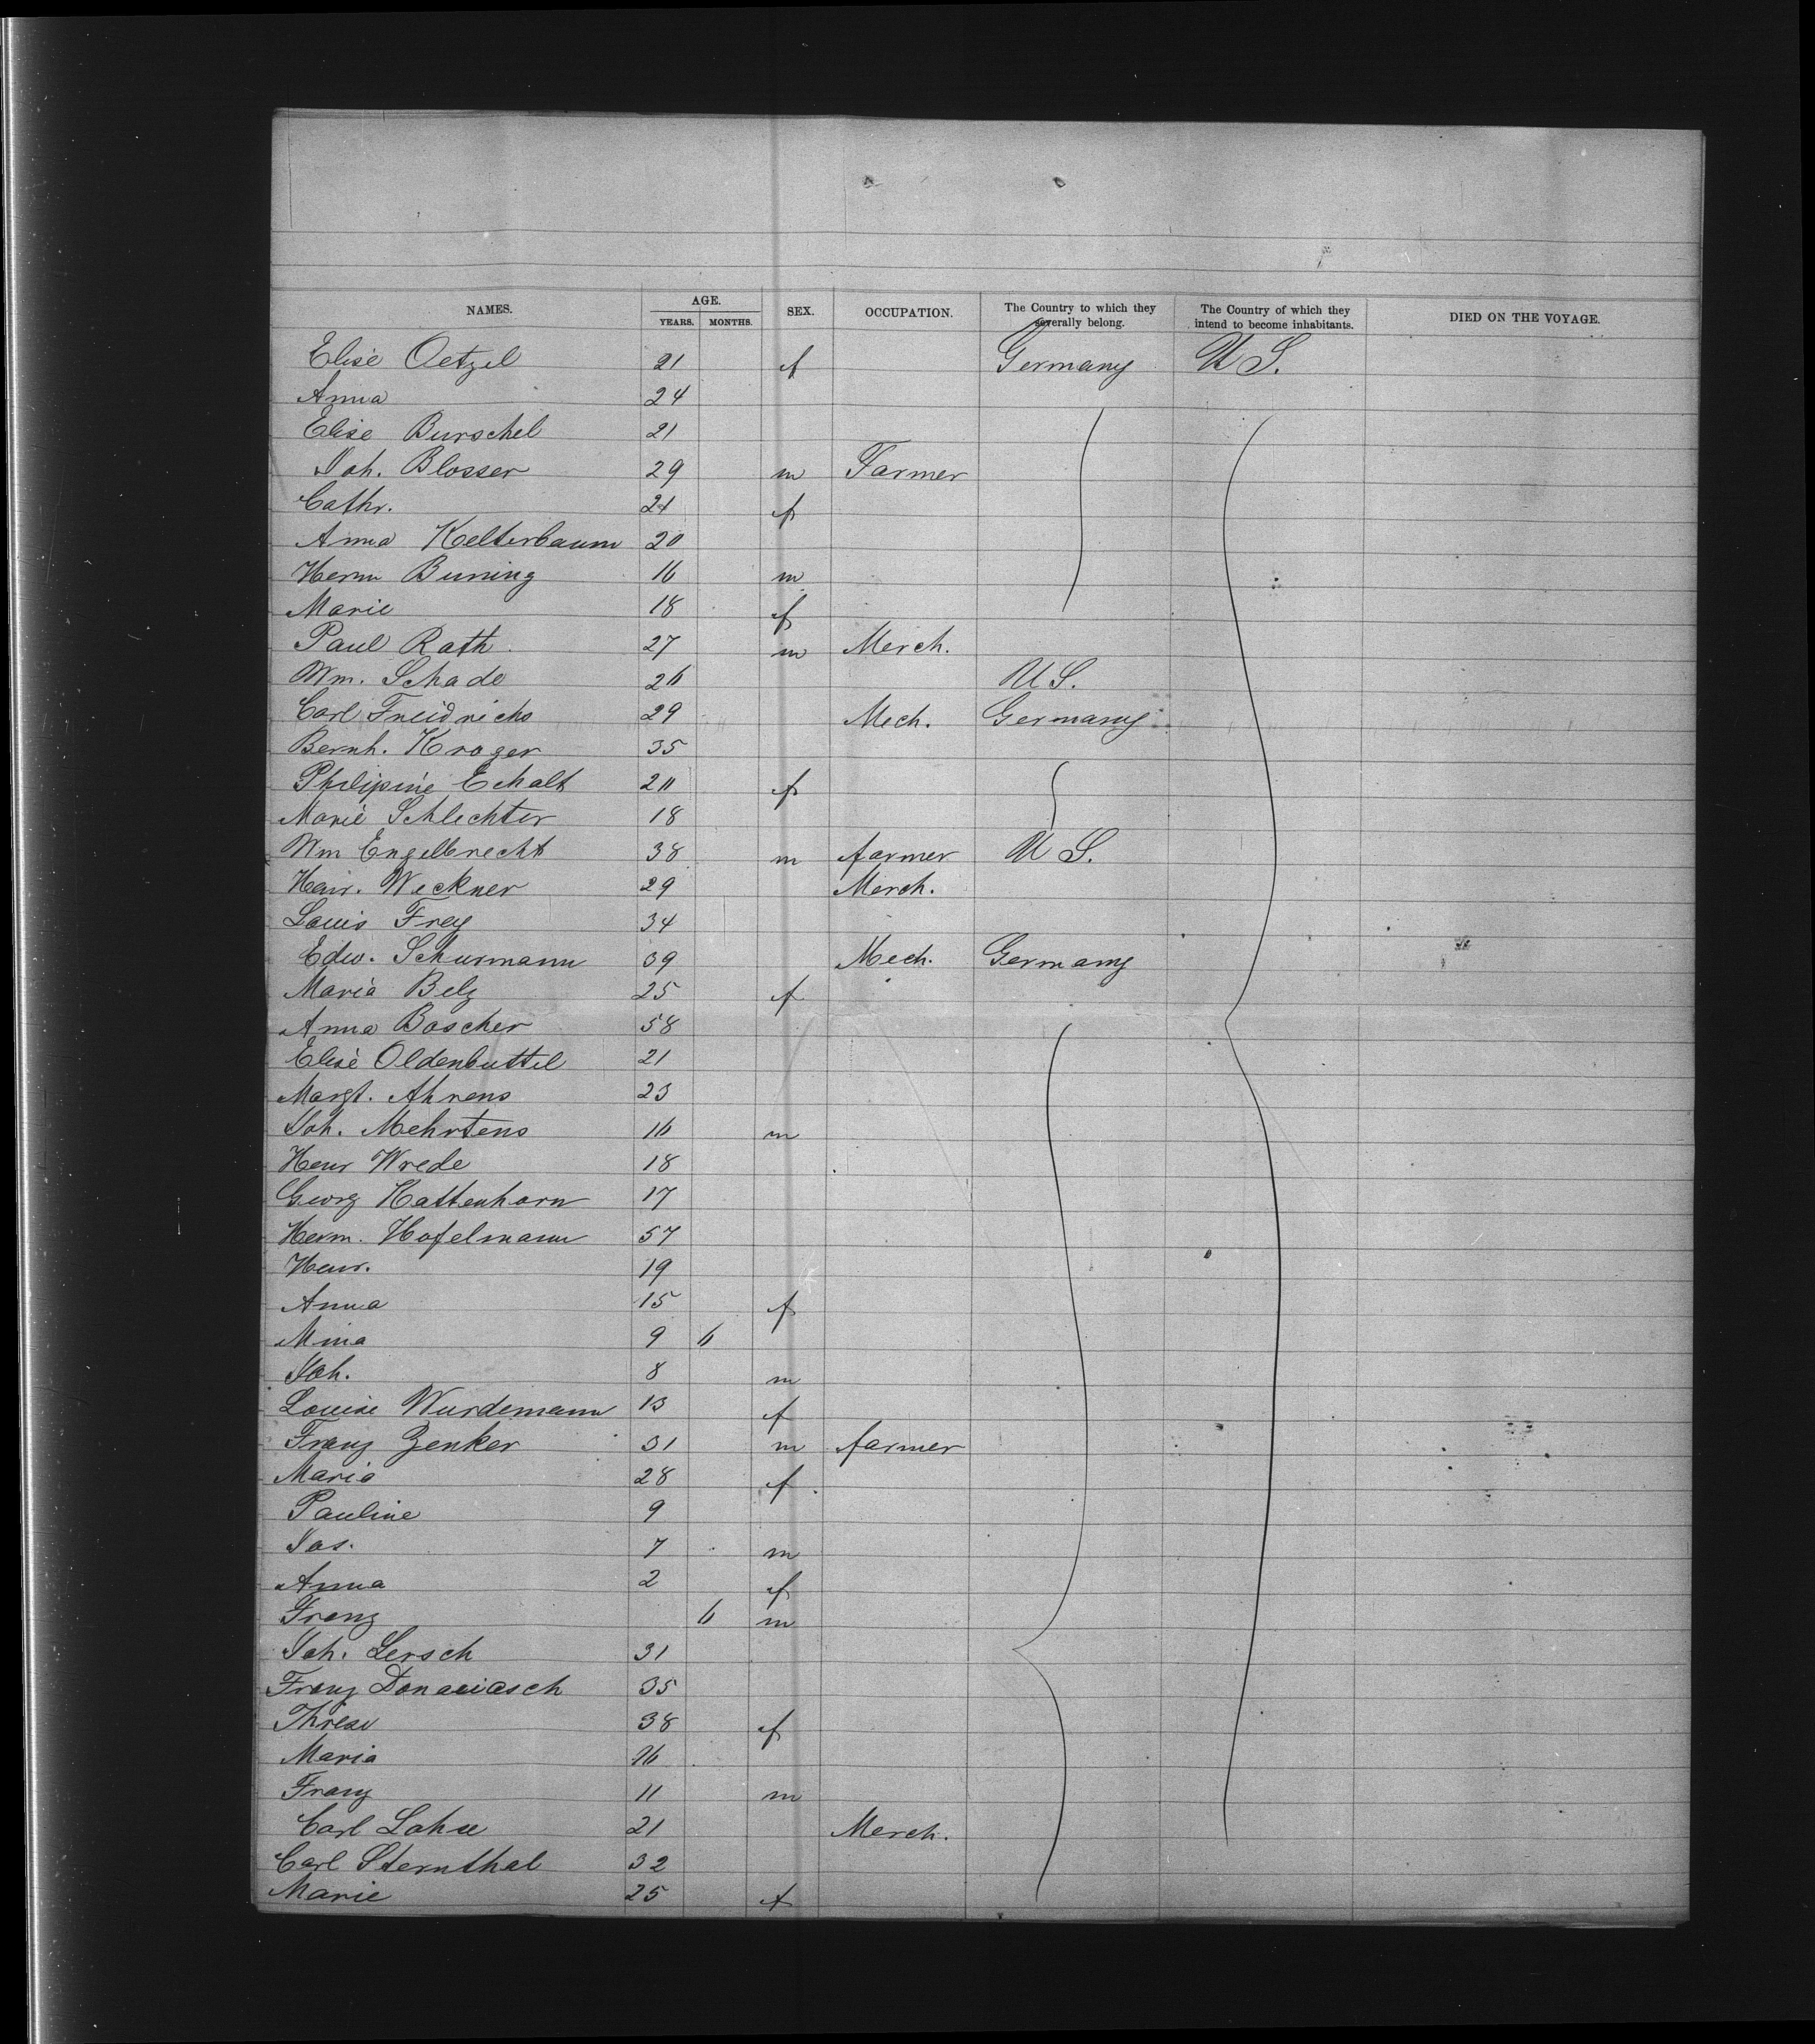 NAMES. AGE. SEX. OCCUPATION. The Country to which they severally belong. The Country of which they intend to become inhabitants. DIED ON THE VOYAGE.
YEARS. MONTHS.
Elise Oetzel 21 f Germany U S.
Anna 24
Elise Burschel 21
Joh. Blosser 29 m Farmer
Cathr. 21 f
Anna Kelterbaum 20
Herm Buning 16 m
Marie 18 f
Paul Rath 27 m Merch.
Wm. Schade 26 U S.
Carl Freidrichs 29 Mech. Germany
Bernh. Kroger 35
Philipine Echalt 20
f
Marie Schlechter 18
Wm Engelbrecht 38 m farmer U S.
Heinr. Weckner 29 Merch.
Louis Frey 34
Edw. Schurmann 39 Mech. Germany
Maria Belz 25 f
Anna Boscher 58
Elise Oldenbuttel 21
Margt. Ahrens 23
Joh. Mehrtens 16 m
Henr Wrede 18
Georg Kattenhorn 17
Herm. Hofelmann 57
Henr. 19
Anna 15 f
Mina 9 6
Joh. 8 m
Louise Wurdemann 13 f
Franz Zenker 31 m farmer
Maria 28 f
Pauline 9
Jos. 7 m
Anna 2 f
Franz 6 m
Joh. Lersch 31
Franz 35
Threse 38 f
Maria 16
Franz 11 m
Carl Lohse 21 Merch.
Carl Sternthal 32
Marie 25 f